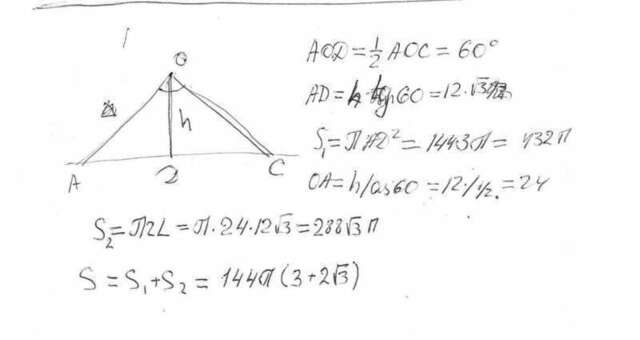 1
O
h
A D C
AOD = 1/2 AOC = 60°
AD = h tg 60 = 12·√3
S₁ = ПAD² = 144·3П = 432П
OA = h/cos60 = 12/½ = 24
S₂ = ПrL = П·24·12√3 = 288√3 П
S = S₁ + S₂ = 144П(3+2√3)